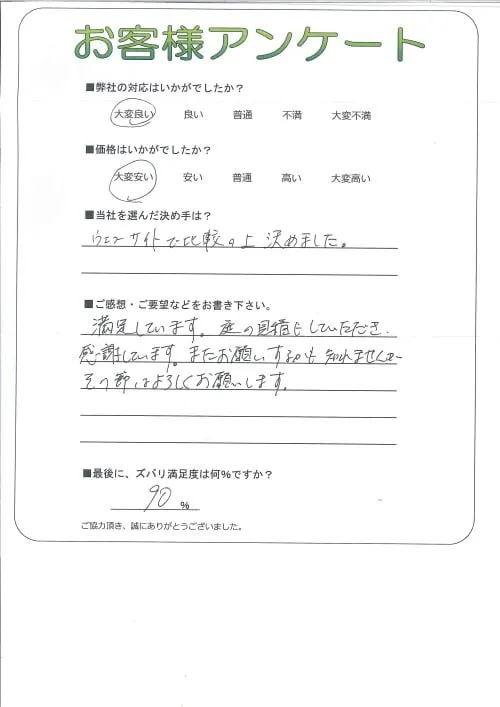 お客様アンケート
■弊社の対応はいかがでしたか?
大変良い 良い 普通 不満 大変不満
■価格はいかがでしたか?
大変安い 安い 普通 高い 大変高い
■当社を選んだ決め手は?
ウェブサイトで比較の上 決めました。
■ご感想・ご要望などをお書き下さい。
満足しています。庭の見積もしていただき、
感謝しています。またお願いするかも知れませんが
その節はよろしくお願いします。
■最後に、ズバリ満足度は何%ですか?
90 %
ご協力頂き、誠にありがとうございました。